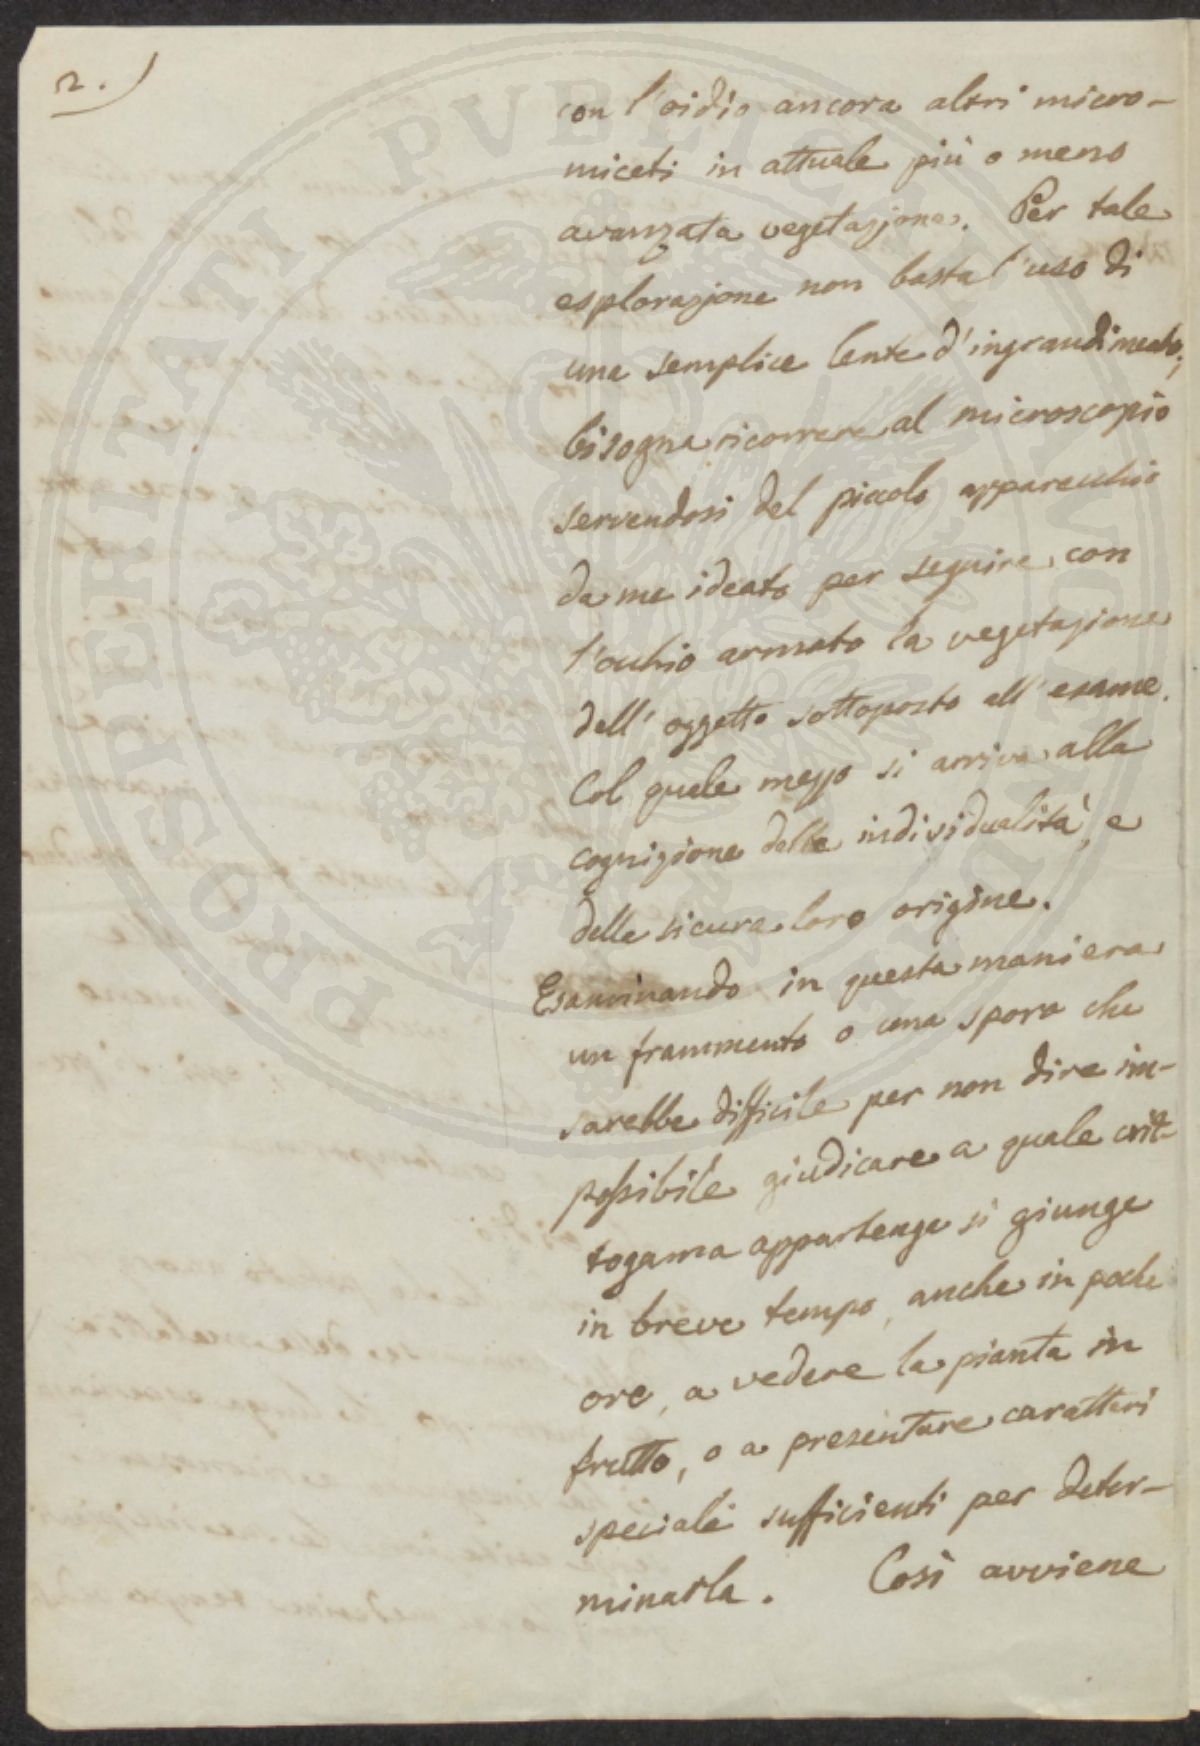 2.)
con l'oidio ancora altri micro-
miceti in attuale più o meno
avanzata vegetazione. Per tale
esplorazione non basta l'uso di
una semplice lente d'ingrandimento;
bisogna ricorrere al microscopio
servendosi del piccolo apparecchio
da me ideato per seguire con
l'occhio armato la vegetazione
dell'oggetto sottoposto all'esame.
Col quale mezzo si arriva alla
cognizione delle individualità, e
della sicura loro origine.
Esaminando in questa maniera
un frammento o una spora che
sarebbe difficile per non dire im-
possibile giudicare a quale crit-
togama appartenga si giunge
in breve tempo, anche in poche
ore, a vedere la pianta in
frutto, o a presentare caratteri
speciali sufficienti per deter-
minarla. Così avviene
PROSPERITATI PVBLICAE